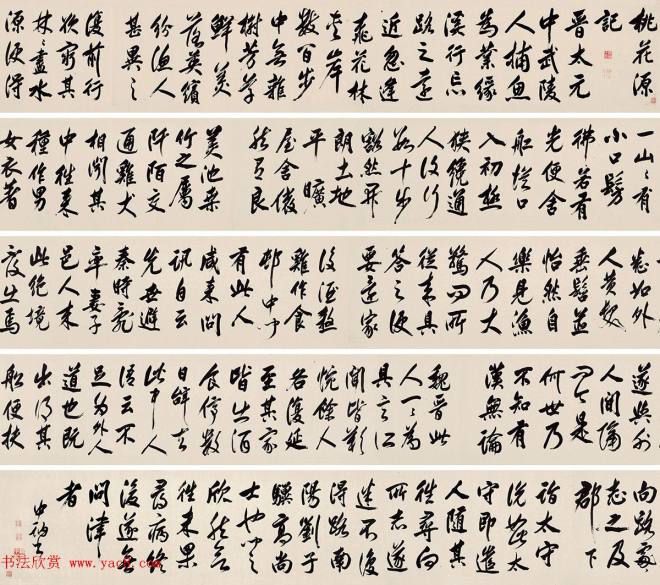 桃花源
記
晉太元
中武陵
人捕魚
為業緣
溪行忘
路之遠
近忽逢
桃花林
夾岸
數百步
中無雜
樹芳草
鮮美
落英繽
紛漁人
甚異之
復前行
欲窮其
林林盡水
源便得
一山山有
小口髣
彿若有
光便舍
船從口
入初極
狹纔通
人復行
數十步
豁然開
朗土地
平曠
屋舍儼
然有良
美池桑
竹之屬
阡陌交
通雞犬
相聞其
中往來
種作男
女衣著
悉如外
人黃髮
垂髫並
怡然自
樂見漁
人乃大
驚問所
從來具
答之便
要還家
設酒殺
雞作食
村中聞
有此人
咸來問
訊自云
先世避
秦時亂
率妻子
邑人來
此絕境
復出焉
遂與外
人間隔
問今是
何世乃
不知有
漢無論
魏晉此
人一一為
具言所
聞皆歎
惋餘人
各復延
至其家
皆出酒
食停數
日辭去
此中人
語云不
足為外人
道也既
出得其
船便扶
向路處
志之及
郡下
詣太守
說如此太
守即遣
人隨其
往尋向
所志遂
迷不復
得路南
陽劉子
驥高尚
士也聞之
欣然
往未果
尋病終
後遂無
問津
者
书法欣赏 www.yac8.com